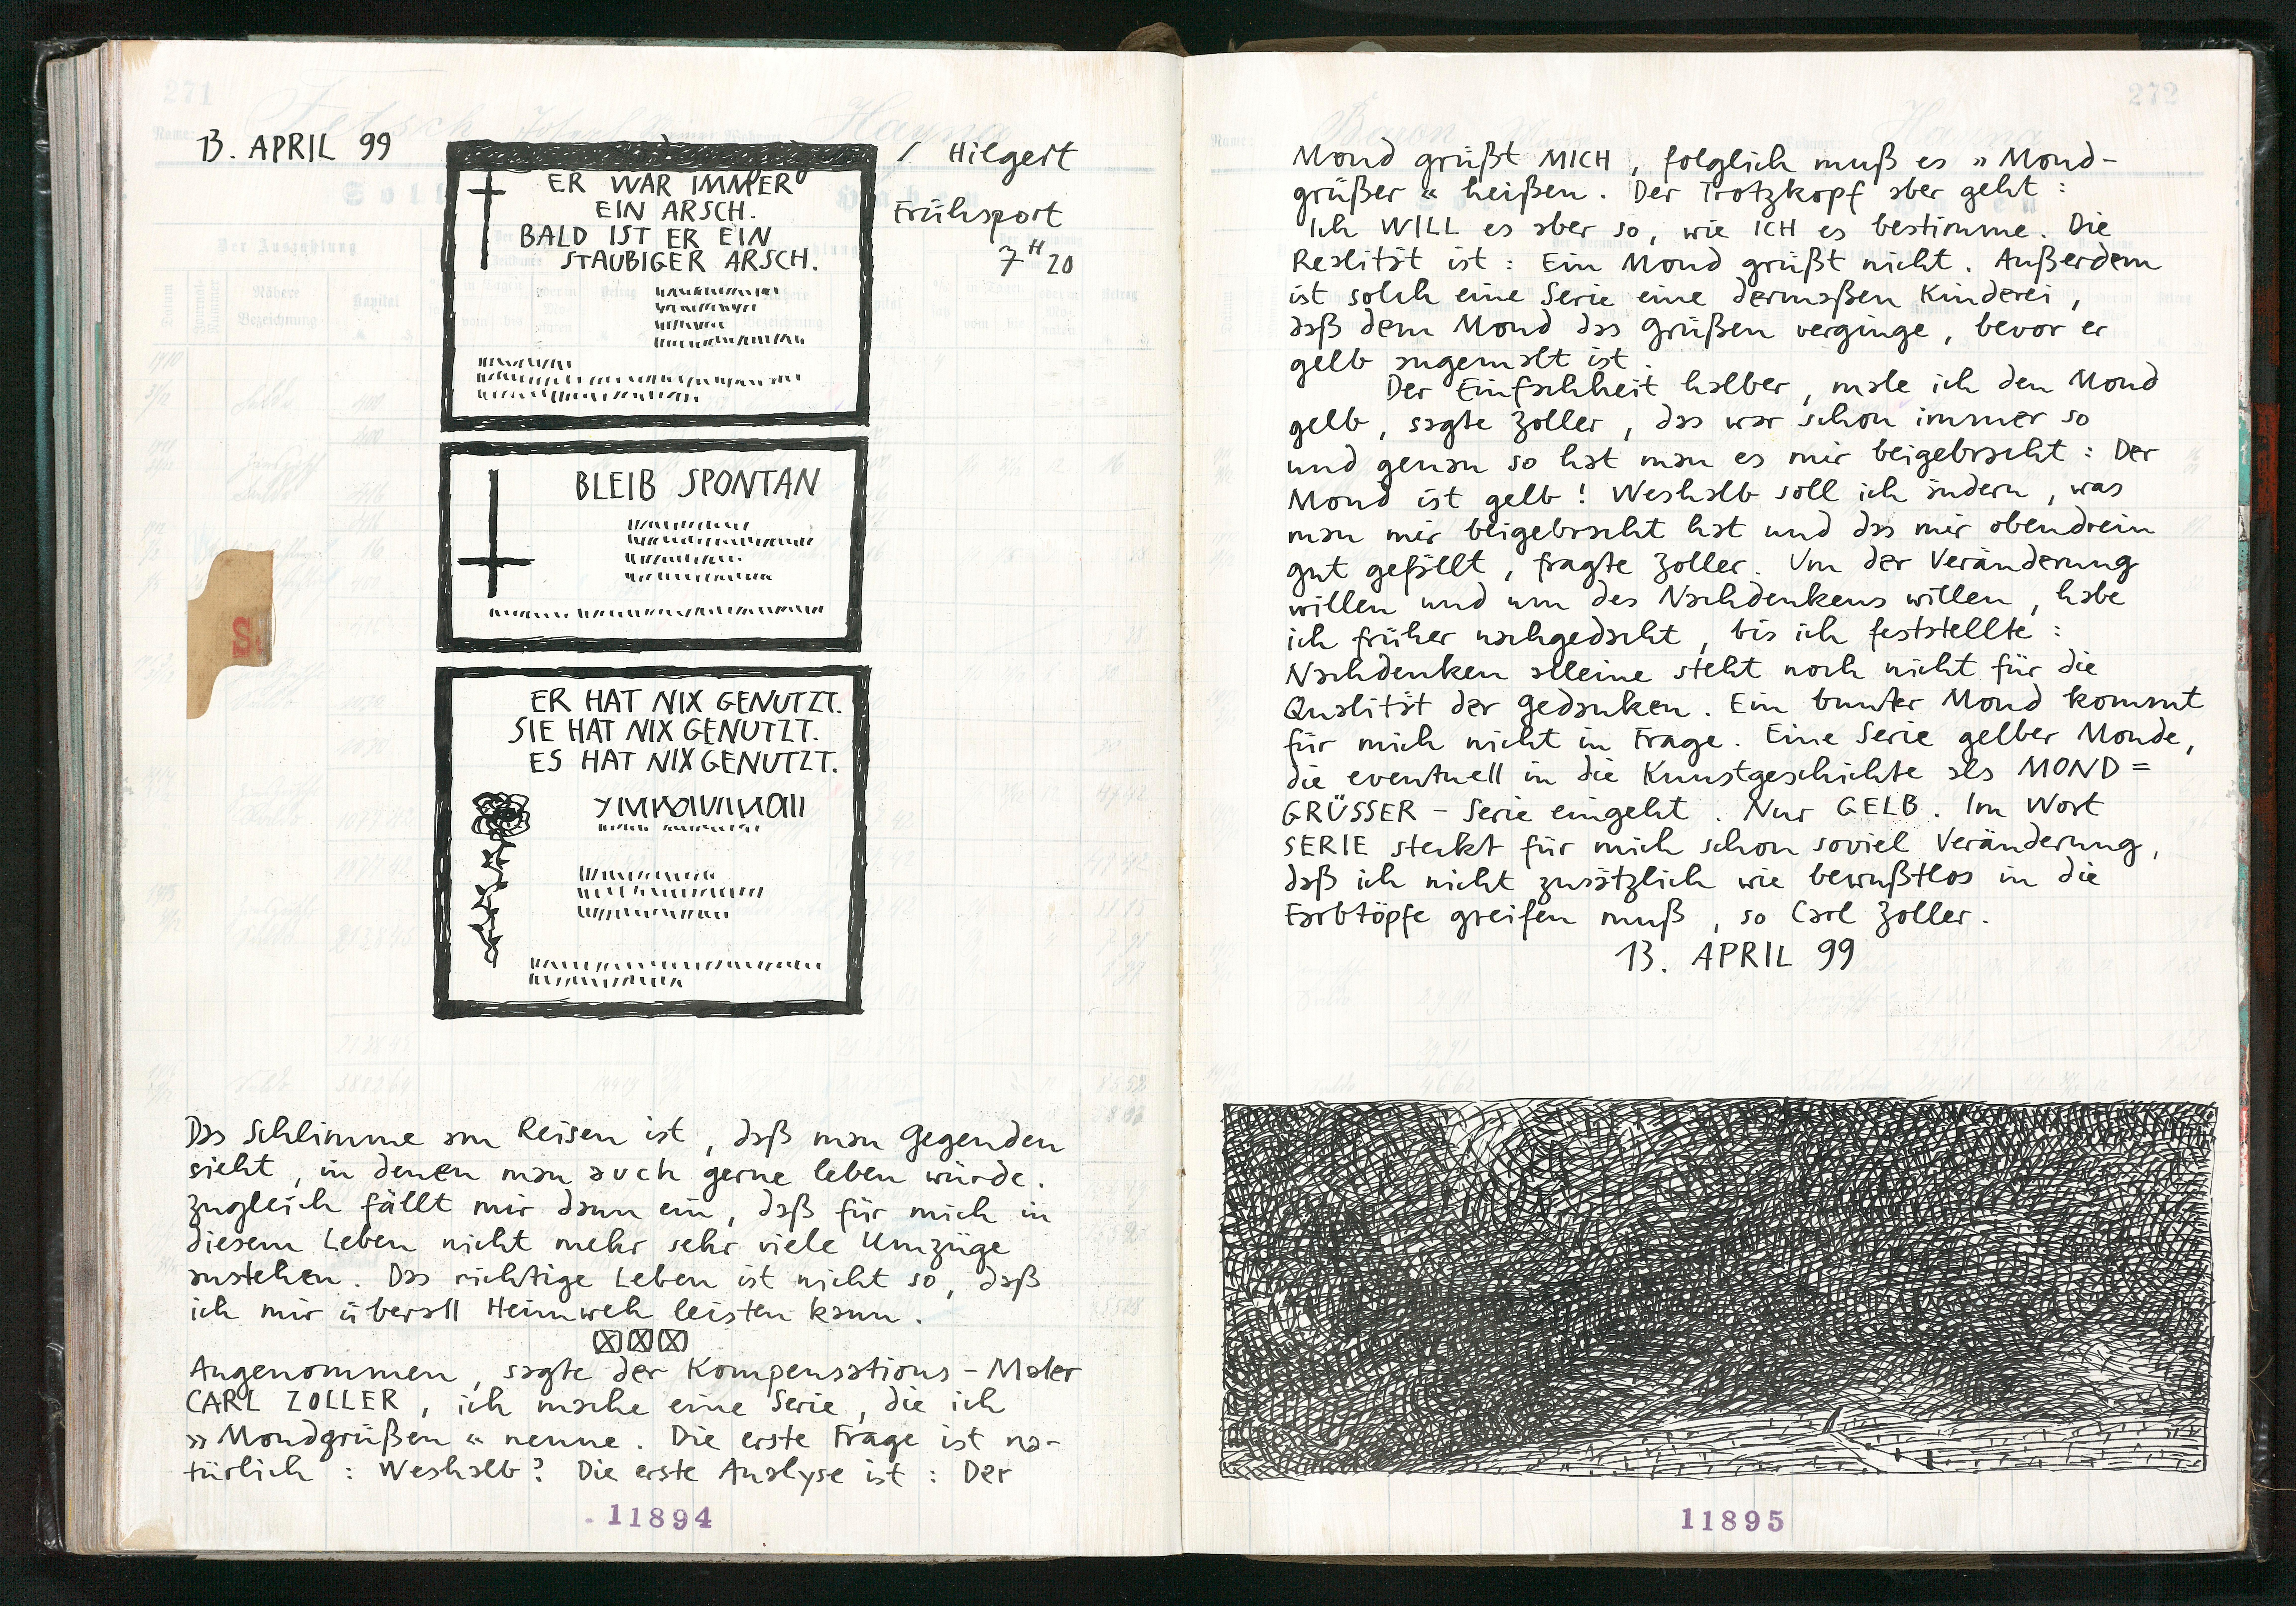 271
13. APRIL 99
/ Hilgert
Frühsport
7 H 20
ER WAR IMMER
EIN ARSCH.
BALD IST ER EIN
STAUBIGER ARSCH.
BLEIB SPONTAN
ER HAT NIX GENUTZT.
SIE HAT NIX GENUTZT.
ES HAT NIX GENUTZT.
S.
Das Schlimme am Reisen ist, daß man Gegenden
sieht, in denen man auch gerne leben würde.
Zugleich fällt mir dann ein, daß für mich in
diesem Leben nicht mehr sehr viele Umzüge
anstehen. Das richtige Leben ist nicht so, daß
ich mir überall Heimweh leisten kann.
Angenommen, sagte der Kompensations-Maler
CARL ZOLLER, ich mache eine Serie, die ich
»Mondgrüßen« nenne. Die erste Frage ist na-
türlich: Weshalb? Die erste Analyse ist: Der
11894
272
Mond grüßt MICH, folglich muß es »Mond-
grüßer« heißen. Der Trotzkopf aber geht:
Ich WILL es aber so, wie ICH es bestimme. Die
Realität ist: Ein Mond grüßt nicht. Außerdem
ist solch eine Serie eine dermaßen Kinderei,
daß dem Mond das Grüßen verginge, bevor er
gelb angemalt ist.
Der Einfachheit halber, male ich den Mond
gelb, sagte Zoller, das war schon immer so
und genau so hat man es mir beigebracht: Der
Mond ist gelb! Weshalb soll ich ändern, was
man mir beigebracht hat und das mir obendrein
gut gefällt, fragte Zoller. Um der Veränderung
willen und um des Nachdenkens willen, habe
ich früher nachgedacht, bis ich feststellte:
Nachdenken alleine steht noch nicht für die
Qualität der Gedanken. Ein bunter Mond kommt
für mich nicht in Frage. Eine Serie gelber Monde,
die eventuell in die Kunstgeschichte als MOND=
GRÜSSER-Serie eingeht. Nur GELB. Im Wort
SERIE steckt für mich schon soviel Veränderung,
daß ich nicht zusätzlich wie bewußtlos in die
Farbtöpfe greifen muß, so Carl Zoller.
13. APRIL 99
11895